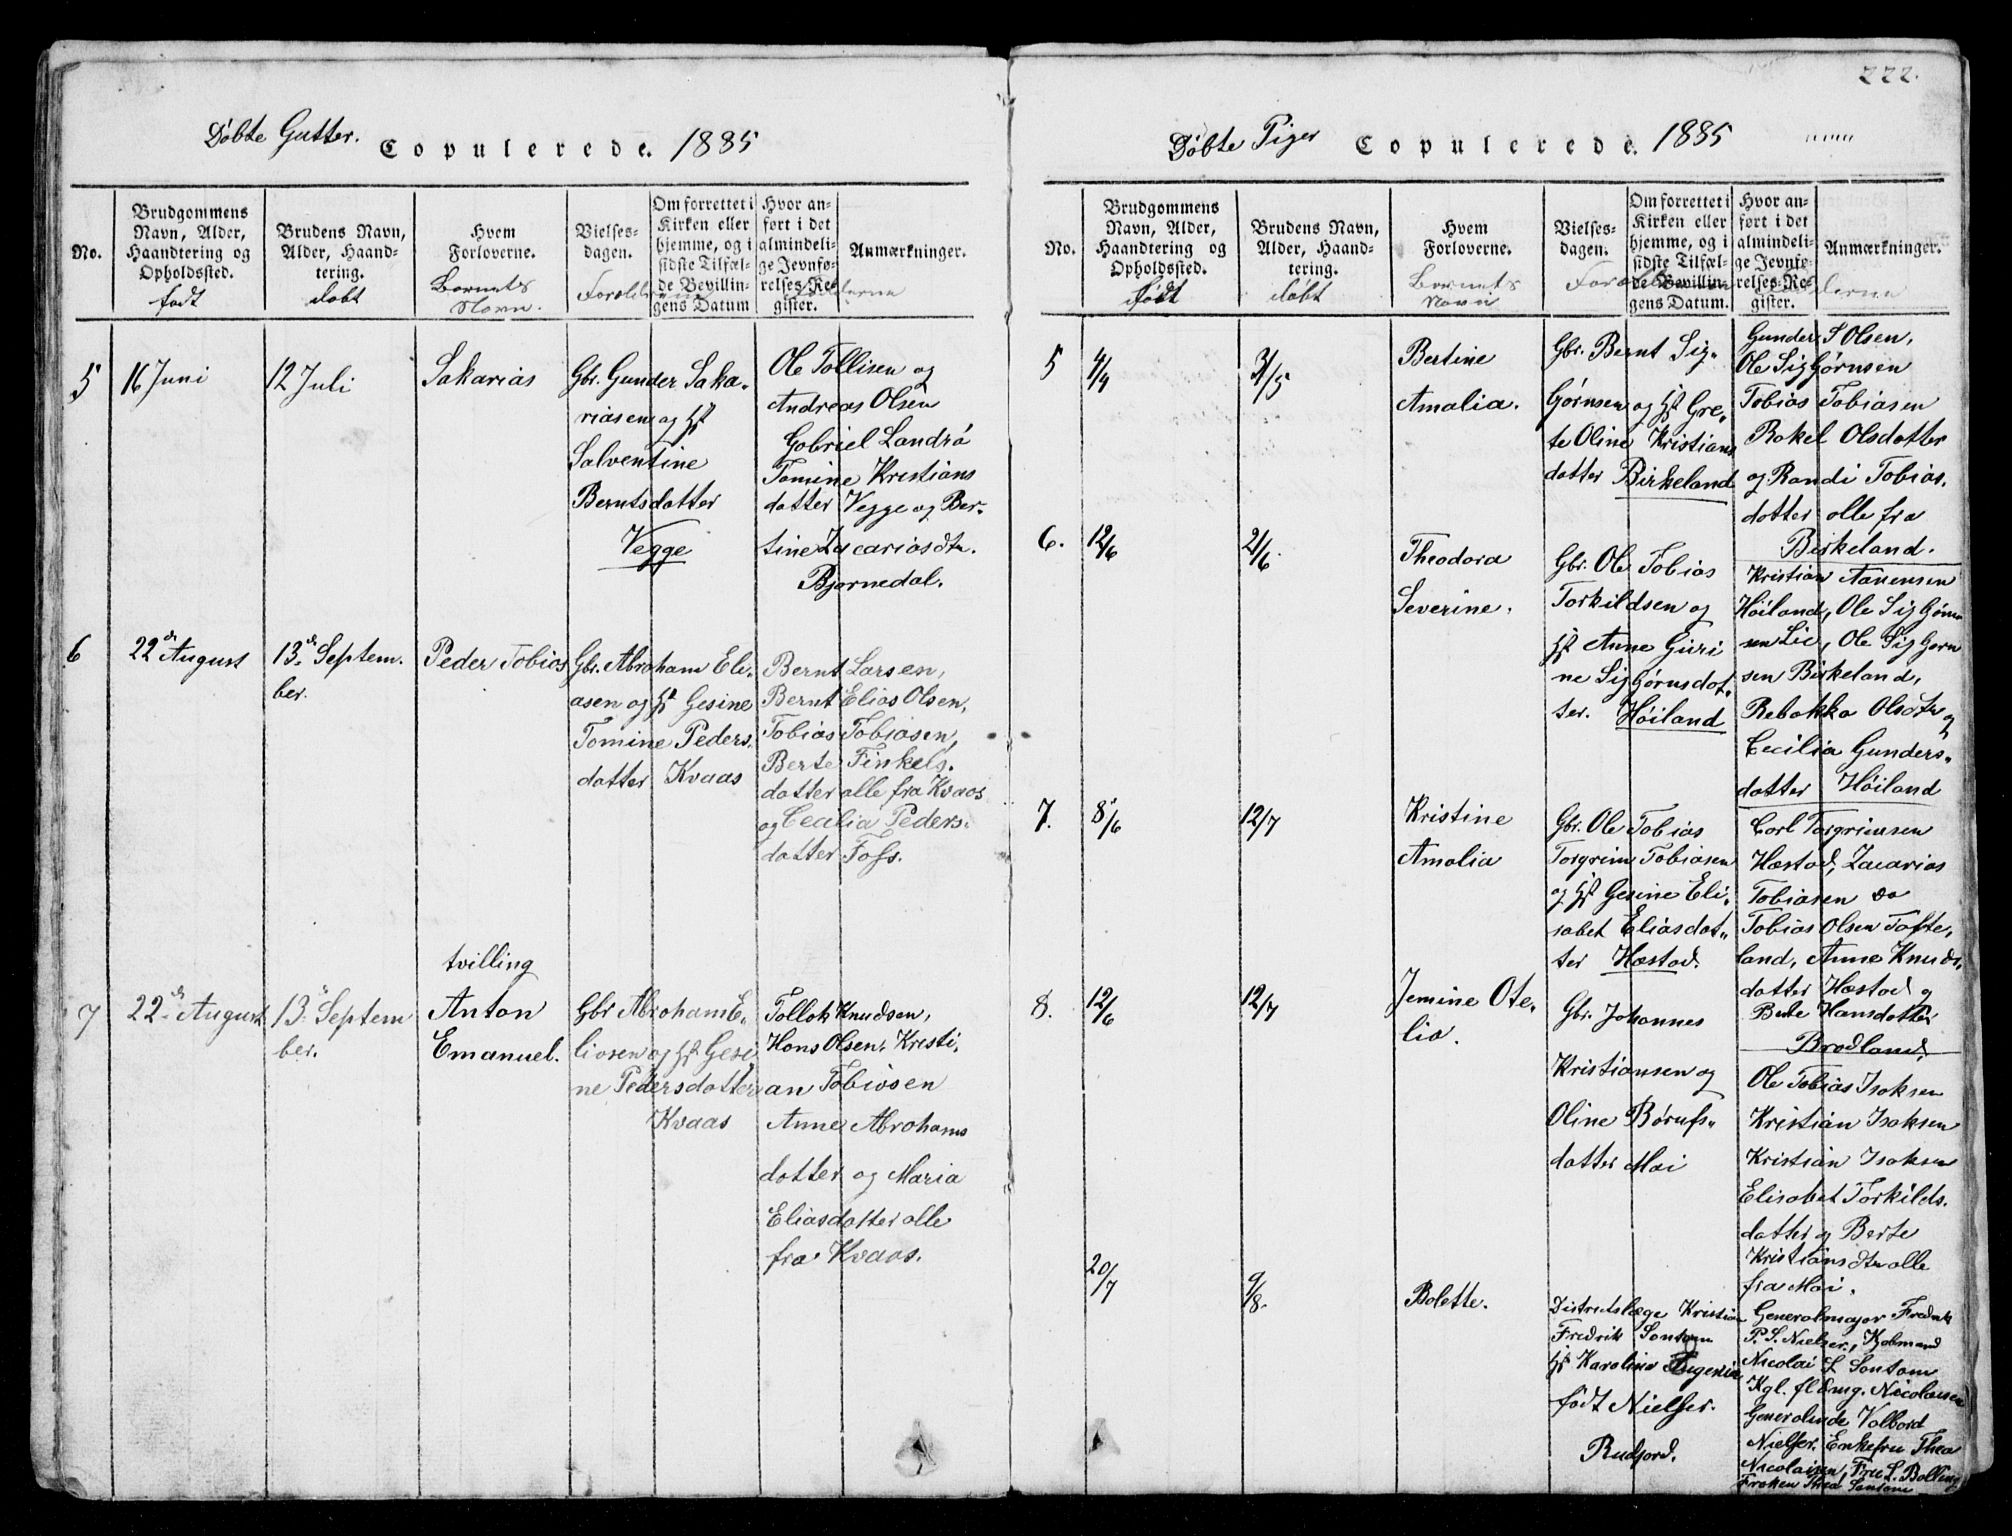 222.
Døbte Gutter. Copulerede. 1885
No.
Brudgommens
Navn, Alder,
Haandtering og
Opholdssted.
født
Brudens Navn,
Alder, Haand-
tering.
døbt
Hvem
Forloverne.
Barnets
Navn.
Vielses-
dagen.
Forældrene
Om forrettet i
Kirken eller
hjemme, og i
sidste Tilfæl-
de Bevillin-
gens Datum
Hvor an-
ført i det
almindeli-
ge Jevnfø-
relses-Re-
gister.
Fadderne
Anmærkninger.
5
16 Juni
12 Juli
Sakarias
Gbr. Gunder Saka-
riasen og Hst
Salventine
Berntsdatter
Vegge
Ole Tollisen og
Andreas Olsen
Gabriel Landrø
Tomine Kristians
datter Vegge og Ber-
tine Zacariasdtr.
Bjørnedal.
6
22de August
13de Septem-
ber.
Peder Tobias
Gbr. Abraham Eli-
asen og Hst Gesine
Tomine Peders-
datter Kvaas
Bernt Larsen,
Bernt Elias Olsen,
Tobias Tobiasen,
Berte Finkels-
datter alle fra Kvaas
og Cecilia Peders-
datter Foss.
7
22de August
13de Septem
ber.
tvilling
Anton
Emanuel.
Gbr Abraham E-
liasen og Hst Gesi
ne Pedersdatter
Kvaas
Tollak Knudsen,
Hans Olsen, Kristi-
an Tobiasen
Anne Abrahams
datter og Maria
Eliasdatter alle
fra Kvaas.
Døbte Piger Copulerede. 1885
No.
Brudgommens
Navn, Alder,
Haandtering og
Opholdssted.
født
Brudens Navn,
Alder, Haand-
tering.
døbt
Hvem
Forloverne.
Barnets
Navn
Vielses-
dagen.
Om forrettet i
Kirken eller
hjemme, og i
sidste Tilfæl-
de Bevillin-
gens Datum.
Hvor an-
ført i det
almindeli-
ge Jevnfø-
relses-Re-
gister.
Anmærkninger.
5
4/4
3/5
Bertine
Amalia.
Gbr. Bernt Sig-
bjørnsen og Hst Gre-
te Oline Kristians
datter Birkeland
Gunder S Olsen,
Ole Sigbjørnsen
Tobias Tobiasen
Rakel Olsdatter
og Randi Tobias-
datter alle fra
Birkeland.
6.
12/6
21/6.
Theodora
Severine.
Gbr. Ole Tobias
Torkildsen og
Hst Anne Guri
ne Sigbjørnsdat-
ter. Høiland
Kristian Aanensen
Høiland, Ole Sigbjørn
sen Lie, Ole Sigbjørn
sen Birkeland,
Rebakka Olsdtr og
Cecilia Gunders-
datter Høiland
7.
8/6
12/7
Kristine
Amalia
Gbr. Ole Tobias
Torgrim Tobiasen
og Hst Gesine Eli-
sabet Eliasdat-
ter Hæstad.
Carl Torgrimsen
Hæstad, Zacarias
Tobiasen do
Tobias Olsen Tofte-
land, Anne Knuds-
datter Hæstad og
Berte Hansdatter
Brodland.
8.
12/6
12/7
Jemine Ote-
lia.
Gbr. Johannes
Kristiansen og
Oline Børufs-
datter Moi
Ole Tobias Isaksen
Kristian Isaksen
Kristian Isaksen
Elisabet Torkilds-
datter og Berte
Kristiansdtr alle
fra Moi.
20/7
9/8.
Bolette.
Distriktslæge Kristian
Fredrik Sontum
Hst Karoline Eugenia
født Nielsen.
Rudjord.
Generalmajor Fredrik
P. S. Nielsen, Kjøbmand
Nicolai S Sontum
Kgl. fldmg. Nicolaisen
Generalinde Valbord
Nielsen, Enkefru Thea
Nicolaisen, Fru S. Bolling
Frøken Thea Sontum